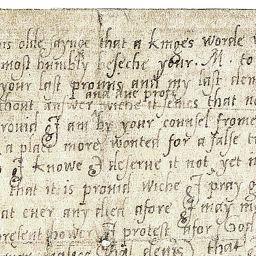 is olde saynge that a kinges worde w
most humbly beseche your M. to
your last promis and my last dem
and due profe
thout answer wiche it semes that no
provid I am by your counsel frome
a place more wonted for a false t
I knowe I deserve it not yet
that it is provid wiche I pray g
at ever any died afore I may m
present hower I protest afor God
that